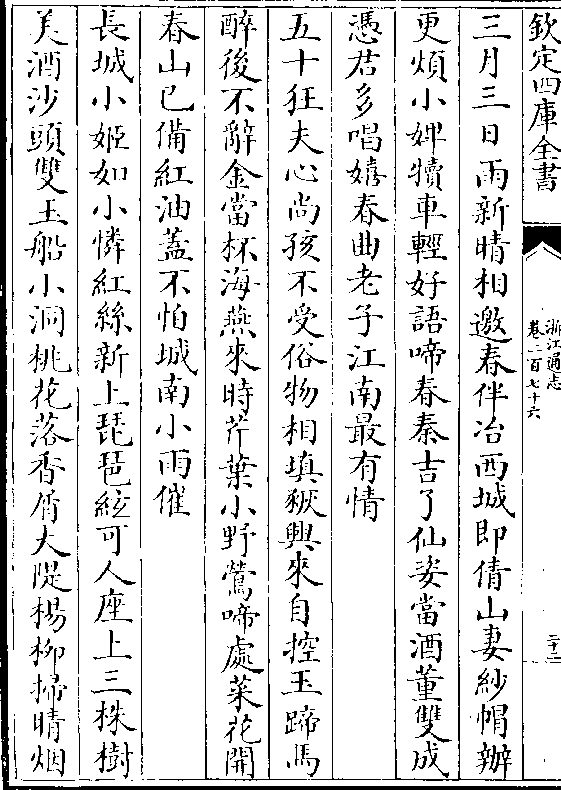 欽定四庫全書
浙江通志
卷二百七十六
三月三日雨新晴相邀春伴冶西城即倩山妻紗帽辦
更煩小婢犢車輕好語啼春秦吉了仙姿當酒董雙成
憑君多唱嬉春曲老子江南最有情
五十狂夫心尚孩不受俗物相填豗興來自控玉蹄馬
醉後不辭金當杯海燕來時芹葉小野鶯啼處菜花開
春山已備紅油蓋不怕城南小雨催
長城小姬如小憐紅絲新上琵琶絃可人座上三株樹
美酒沙頭雙玉船小洞桃花落香屑大隄楊柳掃晴烟